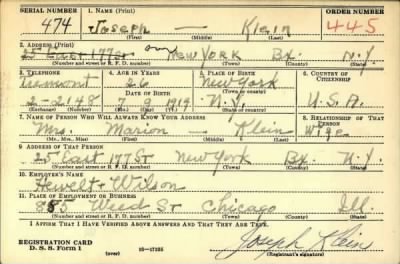 SERIAL NUMBER 1. NAME (Print) ORDER NUMBER
474 Joseph — Klein 445
(First) (Middle) (Last)
2. ADDRESS (Print)
25 East 177 St New York Bx. N.Y.
(Number and street or R. F. D. number) (Town) (County) (State)
3. TELEPHONE 4. AGE IN YEARS 5. PLACE OF BIRTH 6. COUNTRY OF CITIZENSHIP
Tremont 26 New York
DATE OF BIRTH (Town or county)
2-2148 7 9 1914 N.Y. U.S.A.
(Exchange) (Number) (Mo.) (Day) (Yr.) (State or country)
7. NAME OF PERSON WHO WILL ALWAYS KNOW YOUR ADDRESS 8. RELATIONSHIP OF THAT PERSON
Mrs. Marion — Klein Wife
(Mr., Mrs., Miss) (First) (Middle) (Last)
9. ADDRESS OF THAT PERSON
25 East 177 St New York Bx. N.Y.
(Number and street or R. F. D. number) (Town) (County) (State)
10. EMPLOYER'S NAME
Hewelt + Wilson
11. PLACE OF EMPLOYMENT OR BUSINESS
855 Weed St Chicago Ill.
(Number and street or R. F. D. number) (Town) (County) (State)
I AFFIRM THAT I HAVE VERIFIED ABOVE ANSWERS AND THAT THEY ARE TRUE.
REGISTRATION CARD
D. S. S. Form 1 (over) 16-17105 Joseph Klein
(Registrant's signature)